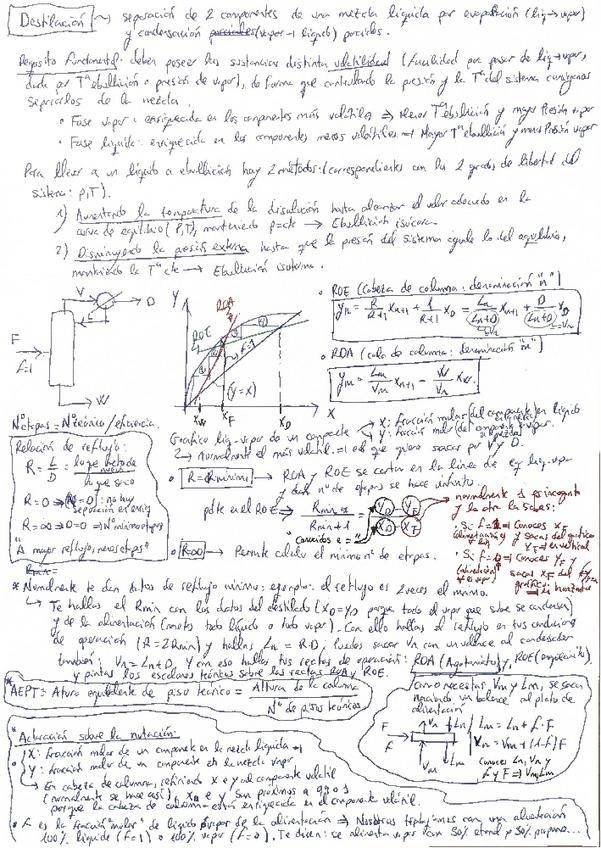 Destilación → separación de 2 componentes de una mezcla líquida por evaporación (liq → vapor)
y condensación parciales (vapor → líquido) parciales.
Requisito fundamental: deben poseer las sustancias distinta volatilidad (facilidad para pasar de liq → vapor,
dada por Tª ebullición o presión de vapor), de forma que controlando la presión y la Tª del sistema consigamos
separarlos de la mezcla.
• Fase vapor: enriquecida en los componentes más volátiles ⇒ Menor Tª ebullición y mayor Presión vapor
• Fase líquida: enriquecida en los componentes menos volátiles ⇒ Mayor Tª ebullición y menos Presión vapor
Para llevar a un líquido a ebullición hay 2 métodos: (correspondientes con los 2 grados de libertad del
sistema: p, T).
1) Aumentando la temperatura de la disolución hasta alcanzar el valor adecuado en la
curva de equilibrio (P,T), manteniendo p cte → Ebullición isócora.
2) Disminuyendo la presión externa hasta que la presión del sistema iguale la del equilibrio,
manteniendo la Tª cte → Ebullición isoterma.
V
D
L
F
f=1
W
Y
ROA
ROE
f=1
(y=x)
X_W
X_F
X_D
X
• ROE (Cabeza de columna: denominación "n")
y_n = R/(R+1) X_{n+1} + 1/(R+1) X_D = L_n/(L_n+D) X_{n+1} + D/(L_n+D) X_D
=V_n
=V_n
• ROA (cola de columna: denominación "m")
y_m = L_m/V_m X_{m+1} − W/V_m X_W.
Nº etapas = Nº teórico / eficiencia.
Relación de reflujo:
R = L/D =
R=0 ⇒ no hay
separación
R=∞ ⇒ D=0 ⇒ Nº mínimo etapas
"A mayor reflujo, menos etapas"
Grafico liq-vapor de un componente
X: fracción molar del componente en líquido
Y: fracción molar del componente en vapor.
→ normalmente el más volátil ⇒ el que quiero sacar por V y D.
• R = R mínimo → ROA y ROE se cortan en la línea de eq liq-vapor
y dan nº de etapas se hace infinito.
pdte en el ROE → R min,x / R min +1 = (Y_D − Y_F)/(X_D − X_F)
"Conocidos e ="
normalmente es
y la otra la sabes:
• Si f=1 ⇒ Conoces X_F
y sacas del grafico
Y_F ⇒ es vertical
• Si f=0 ⇒ Conoces Y_F y
sacas X_F del
• R=∞ → Permite calcular el mínimo nº de etapas.
* Normalmente te dan datos de reflujo mínimo: ejemplo: el reflujo es 2 veces el mínimo.
↳ Te hallas el Rmin con los datos del destilado (X_D = Y_D porque todo el vapor que sube se condensa)
y de la alimentación (metes todo líquido o todo vapor). Con ello hallas el reflujo en tus condiciones
de operación (R = 2Rmin) y hallas L_n = R·D, Puedes sacar V_n con un balance al condensador
también: V_n = L_n + D. Y con eso hallas tus rectas de operación: ROA (Agotamiento) y ROE (enriquecimiento).
y pintas los escalones teóricos sobre las rectas ROA y ROE.
* AEPT = Altura equivalente de piso teórico = Altura de la columna / Nº de pisos teóricos
como necesitas V_m y L_m, se saca
haciendo un balance al plato de
alimentación
F
F
V_n
L_n
V_m
L_m
L_m = L_n + f·F
V_n = V_m + (1-f)F
conoces L_n, V_n y
f y F ⇒ V_m, L_m
* Aclaración sobre la notación:
X: fracción molar de un componente en la mezcla líquida
Y: fracción molar de un componente en la mezcla vapor
→ En cabeza de columna, refiriendo X e Y al componente volátil
(normalmente se hace así), X_D e Y son próximos a 1
porque la cabeza de columna está enriquecida en el componente volátil.
• f es la fracción "molar" de líquido de la alimentación ⇒ Nosotros trabajamos con una alimentación
100% líquida (f=1) o 100% vapor (f=0). Te dicen: se alimenta vapor con 50% etanol y 50%